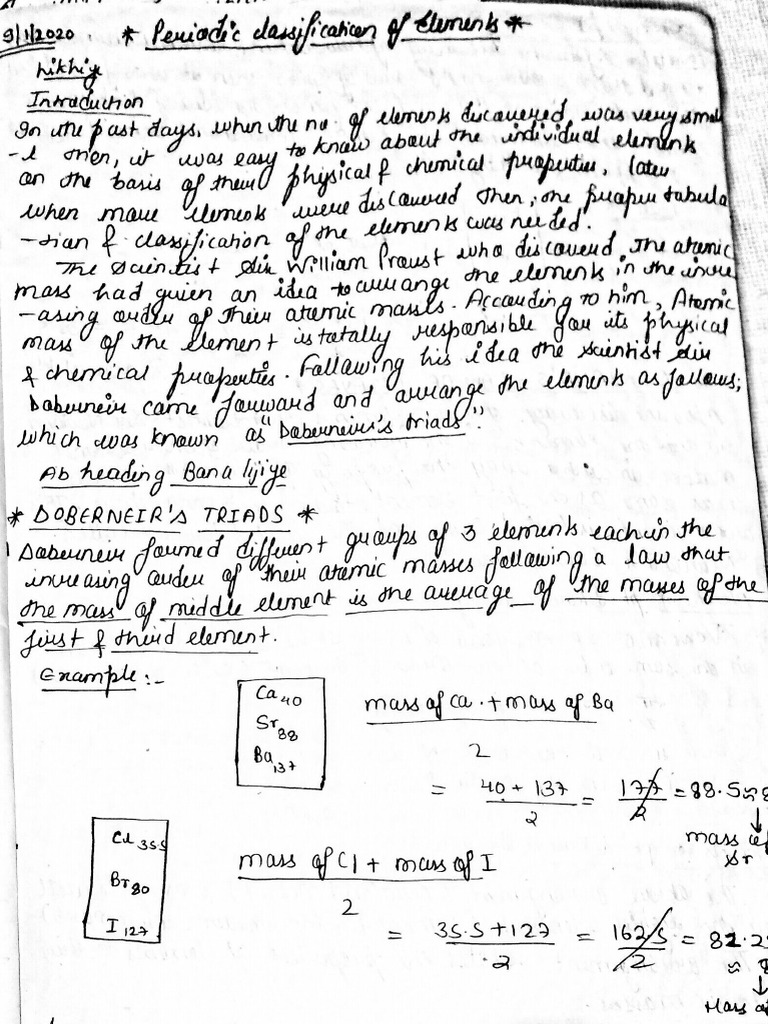 9/1/2020 * Periodic classification of Elements *
Likhiye
Introduction
In the past days, when the no. of elements discovered, was very small
- l then, it was easy to know about the individual elements
on the basis of their physical & chemical properties, later
when more elements were discovered then, the proper tabula
- tion & classification of the elements was needed.
The scientist Sir William Proust who discovered, the atomic
mass had given an idea to arrange the elements in the incre
- asing order of their atomic masses. According to him, Atomic
mass of the element is totally responsible for its physical
& chemical properties. Following his idea the scientist Sir
Doberneir came forward and arrange the elements as follows;
which was known as "Doberneir's triads".
Ab heading Bana lijiye
* DOBERNEIR'S TRIADS *
Doberneir formed different groups of 3 elements each in the
increasing order of their atomic masses following a law that
the mass of middle element is the average of the masses of the
first & third element.
Example :-
Ca 40
Sr 88
Ba 137
mass of Ca. + mass of Ba
2
= 40 + 137 / 2 = 177 / 2 = 88.5 ≈ 8
↓
mass of
Sr
Cl 35.5
Br 80
I 127
mass of Cl + mass of I
2
= 35.5 + 127 / 2 = 162.5 / 2 = 82.2
≈ 8
↓
Mass o